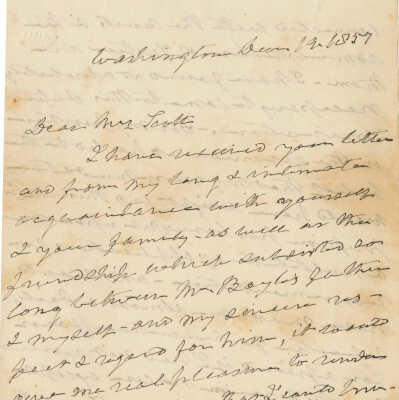 Washington Decr 19. 1857
Dear Mrs Scott
I have received your letter
and from my long & intimate
acquaintance with yourself
& your family - as well as the
friendship which subsisted so
long between Mr Bayly's father
& myself - and my sincere res-
pect & regard for him, it would
give me real pleasure to render